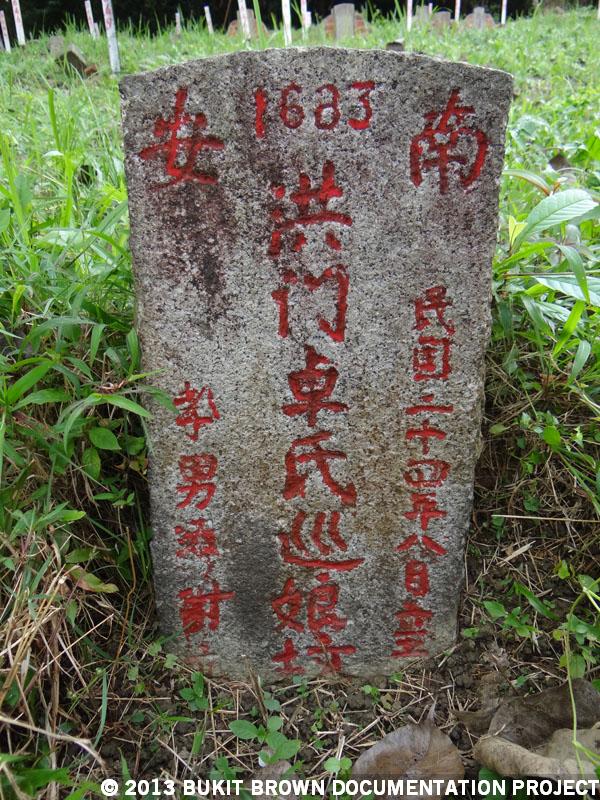 1683
南安
民国二十四年八日立
洪门卓氏巡娘坟
孝男
© 2013 BUKIT BROWN DOCUMENTATION PROJECT